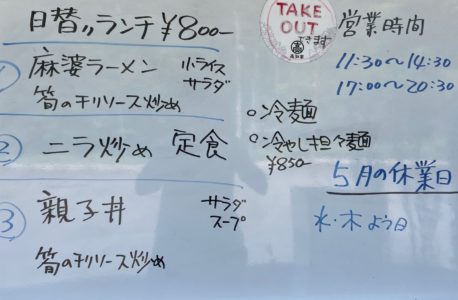 日替〃ランチ ¥800-
① 麻婆ラーメン 小ライス サラダ
筍のチリソース炒め
② ニラ炒め 定食
③ 親子丼 サラダ スープ
筍のチリソース炒め
TAKE OUT
できます
○冷麺
○冷やし担々麺
¥850-
営業時間
11:30〜14:30
17:00〜20:30
5月の休業日
水・木よう日